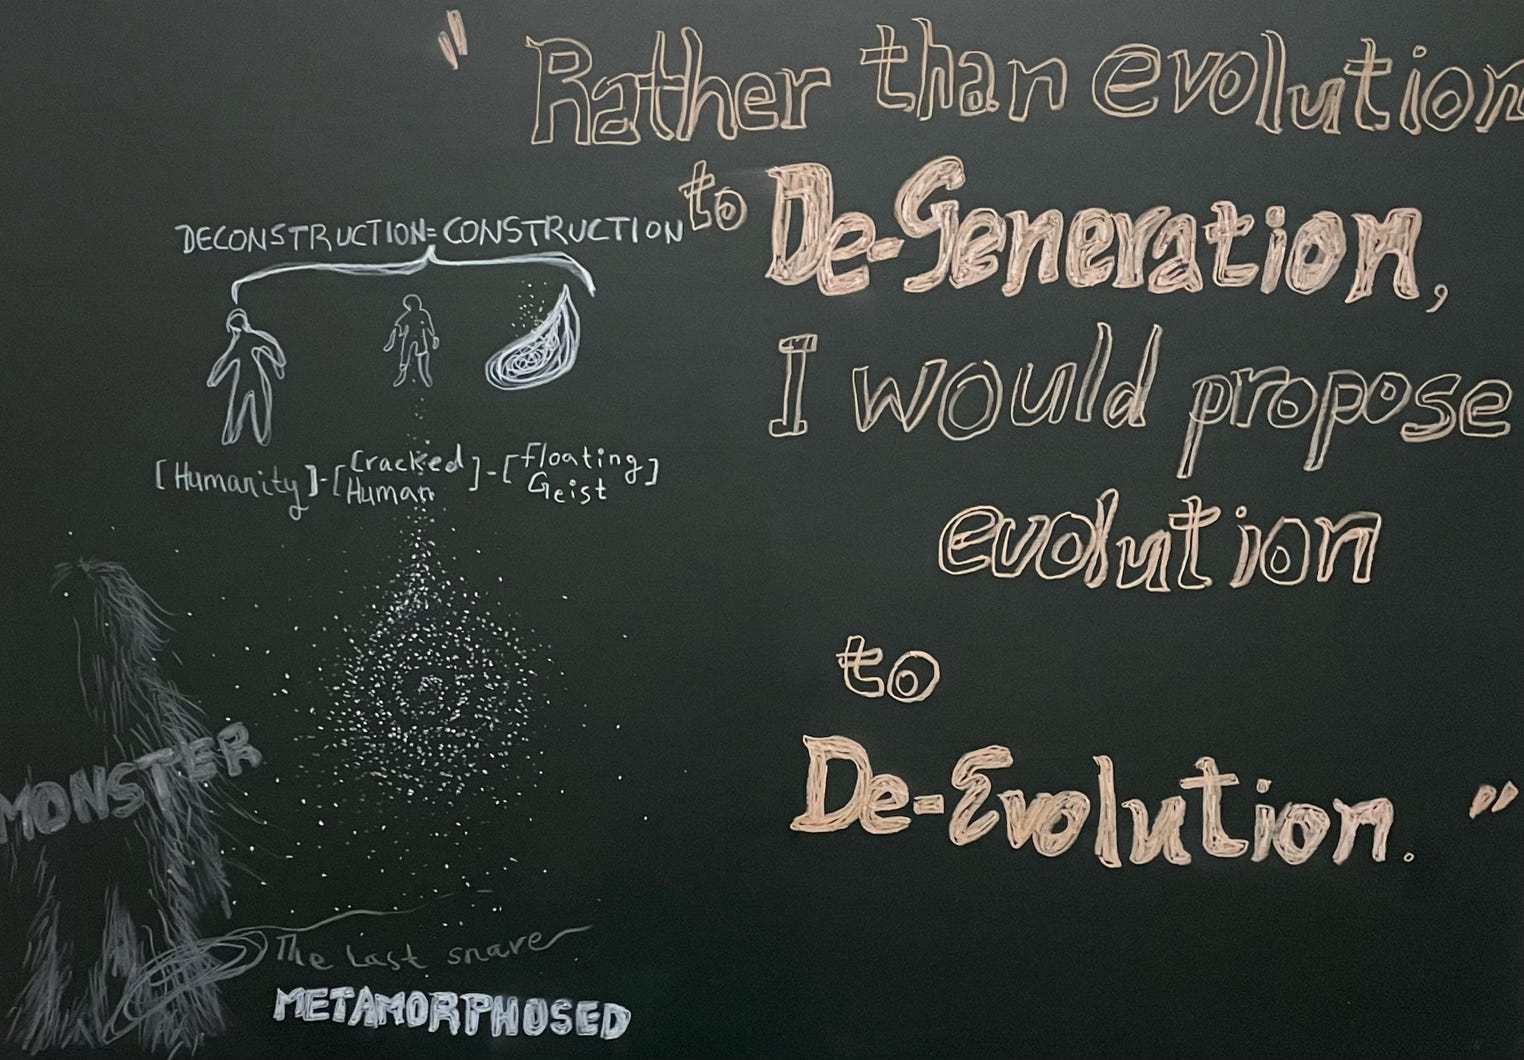 " Rather than evolution
to De-Generation,
I would propose
evolution
to
De-Evolution. "
DECONSTRUCTION=CONSTRUCTION
[Humanity]-[Cracked Human]-[floating Geist]
MONSTER
The Last snare
METAMORPHOSED